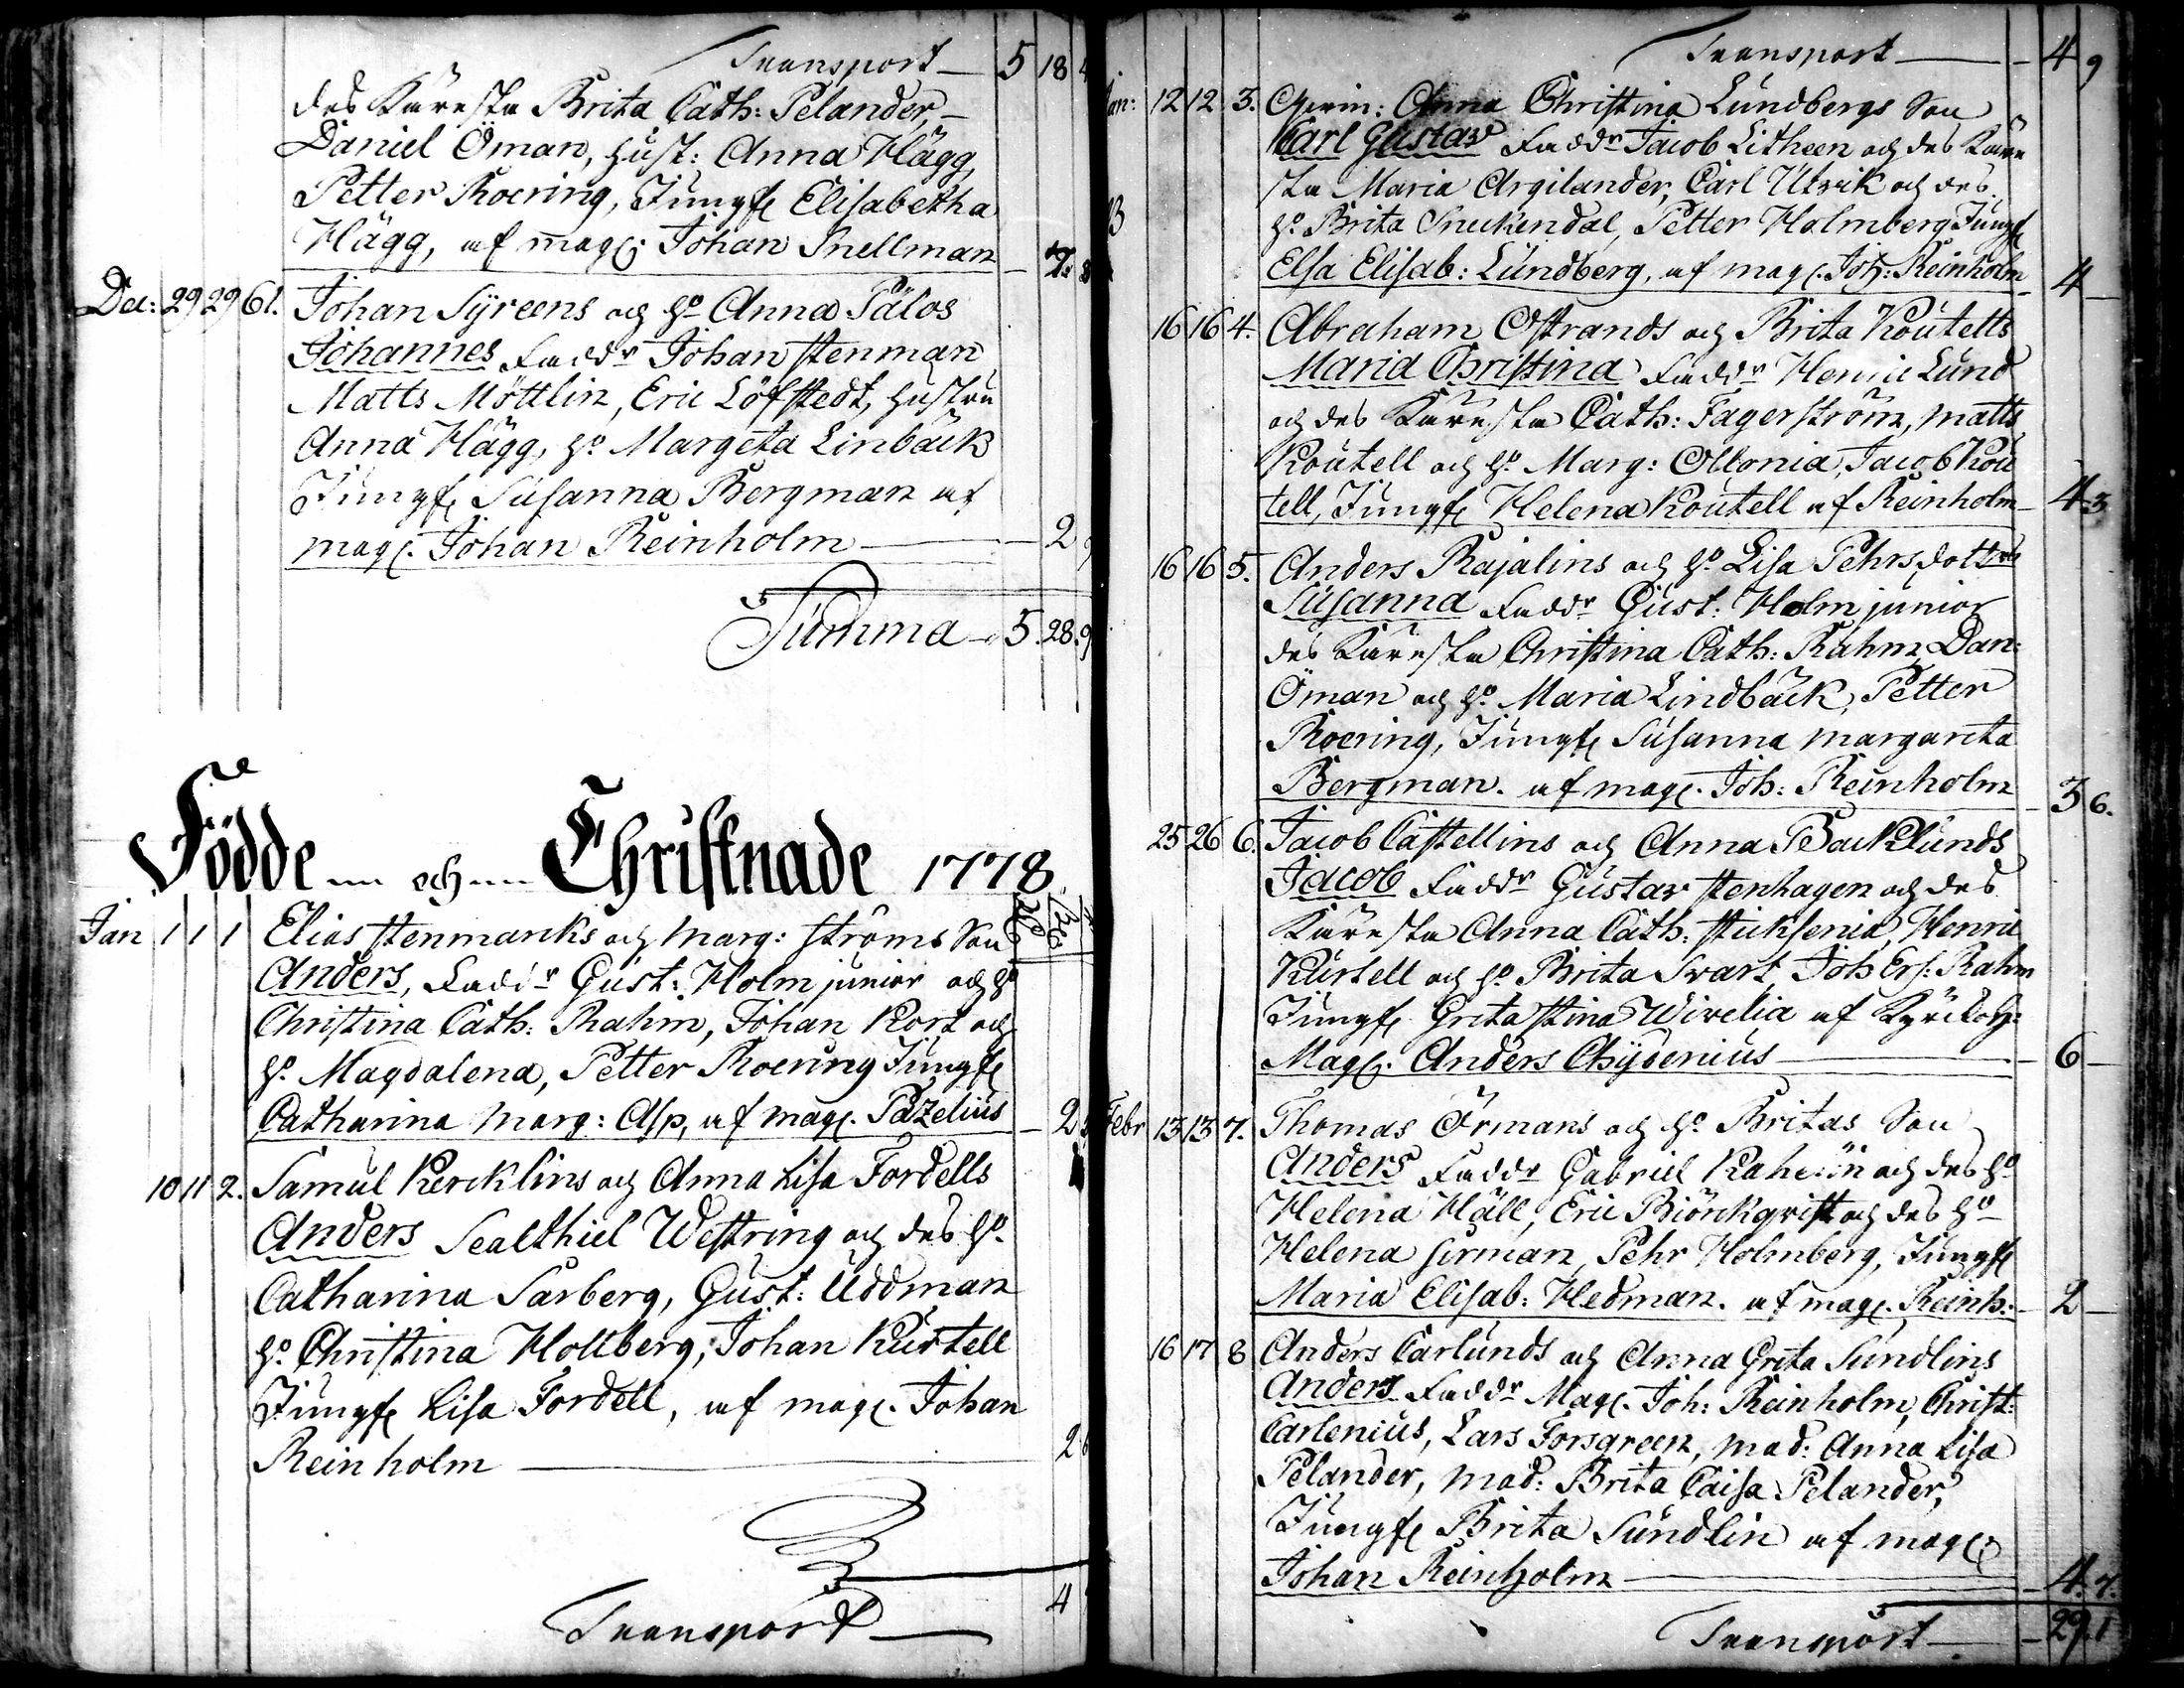 Transport — 5 18
des Käresta Brita Cath: Pelander, —
Daniel Öman, Hust: Anna Hägg,
Petter Roering, Jungf. Elisabetha
Hägg, af mag. Johan Snellman — 7. 8
Dec: 29 29 61. Johan Syreens och H:o Anna Pälos
Johannes Faddr Johan Stenman
Matts Möttlin, Eric Löfstedt, Hustru
Anna Hägg, H:o Margeta Linbäck
Jungf. Susanna Bergman af
mag. Johan Reinholm — 2 9
Summa — 5. 28. 9
Födde och Christnade 1778
Jan 1 1 1 Elias Stenmarks och Marg: Ströms Son
Anders, Faddr Gust: Holm junior och H:o
Christina Cath: Rahm, Johan Kort och
H:o Magdalena, Petter Roering Jungf.
Catharina Marg: Asp, af mag. Pazelius — 2
10 11 2. Samul Kercklins och Anna Lisa Fordells
Anders Sealthiel Westring och des H:o
Catharina Sarberg, Gust: Uddman
H:o Christina Hollberg, Johan Kurtell
Jungf. Lisa Fordell, af mag. Johan
Reinholm — 2 6
Transport — 4
Transport — 4 9
Jan: 12 12 3. Qwin: Anna Christina Lundbergs Son
Carl Gustav Faddr Jacob Litheen och des Käre
sta Maria Argilander, Carl Ulrik och des
H:o Brita Sneckendal, Petter Holmberg Jungf.
Elsa Elisab: Lundberg, af mag. Joh: Reinholm — 4 —
16 16 4. Abraham Ostrands och Brita Koutells
Maria Christina Faddr Henric Lund
och des Käresta Cath: Fagerström, Matts
Koutell och H:o Marg: Ollonia, Jacob Kou
tell, Jungf. Helena Koutell af Reinholm — 4. 3
16 16 5. Anders Rajalins och H:o Lisa Pehrsdotters
Susanna Faddr Gust: Holm junior
des Käresta Christina Cath: Rahm, Dan:
Öman och H:o Maria Lindbäck, Petter
Roering, Jungf. Susanna Margareta
Bergman. af mag. Joh: Reinholm — 3 6.
25 26 6. Jacob Castellins och Anna Backlunds
Jacob Faddr Gustav Stenhagen och des
Käresta Anna Cath: Stichsenia, Henric
Kurtell och H:o Brita Svart, Joh Ers: Rahm
Jungf. Greta Stina Wivelia af Kyrckoh:
Mag. Anders Chydenius — 6 —
Febr 13 13 7. Thomas Örmans och H:o Britas Son
Anders Faddr Gabriel och des H:o
Helena Häll, Eric Biörckqvist och des H:o
Helena Sirman, Pehr Holmberg, Jungf.
Maria Elisab: Hedman. af mag. Reinh: — 2 —
16 17 8 Anders Carlunds och Anna Greta Sundlins
Anders Faddr Mag. Joh: Reinholm, Christ:
Carlenius, Lars Forsgreen, Mad: Anna Lisa
Pelander, Mad: Brita Caisa Pelander,
Jungf. Brita Sundlin af mag.
Johan Reinholm — 4. 7.
Transport — 29. 1